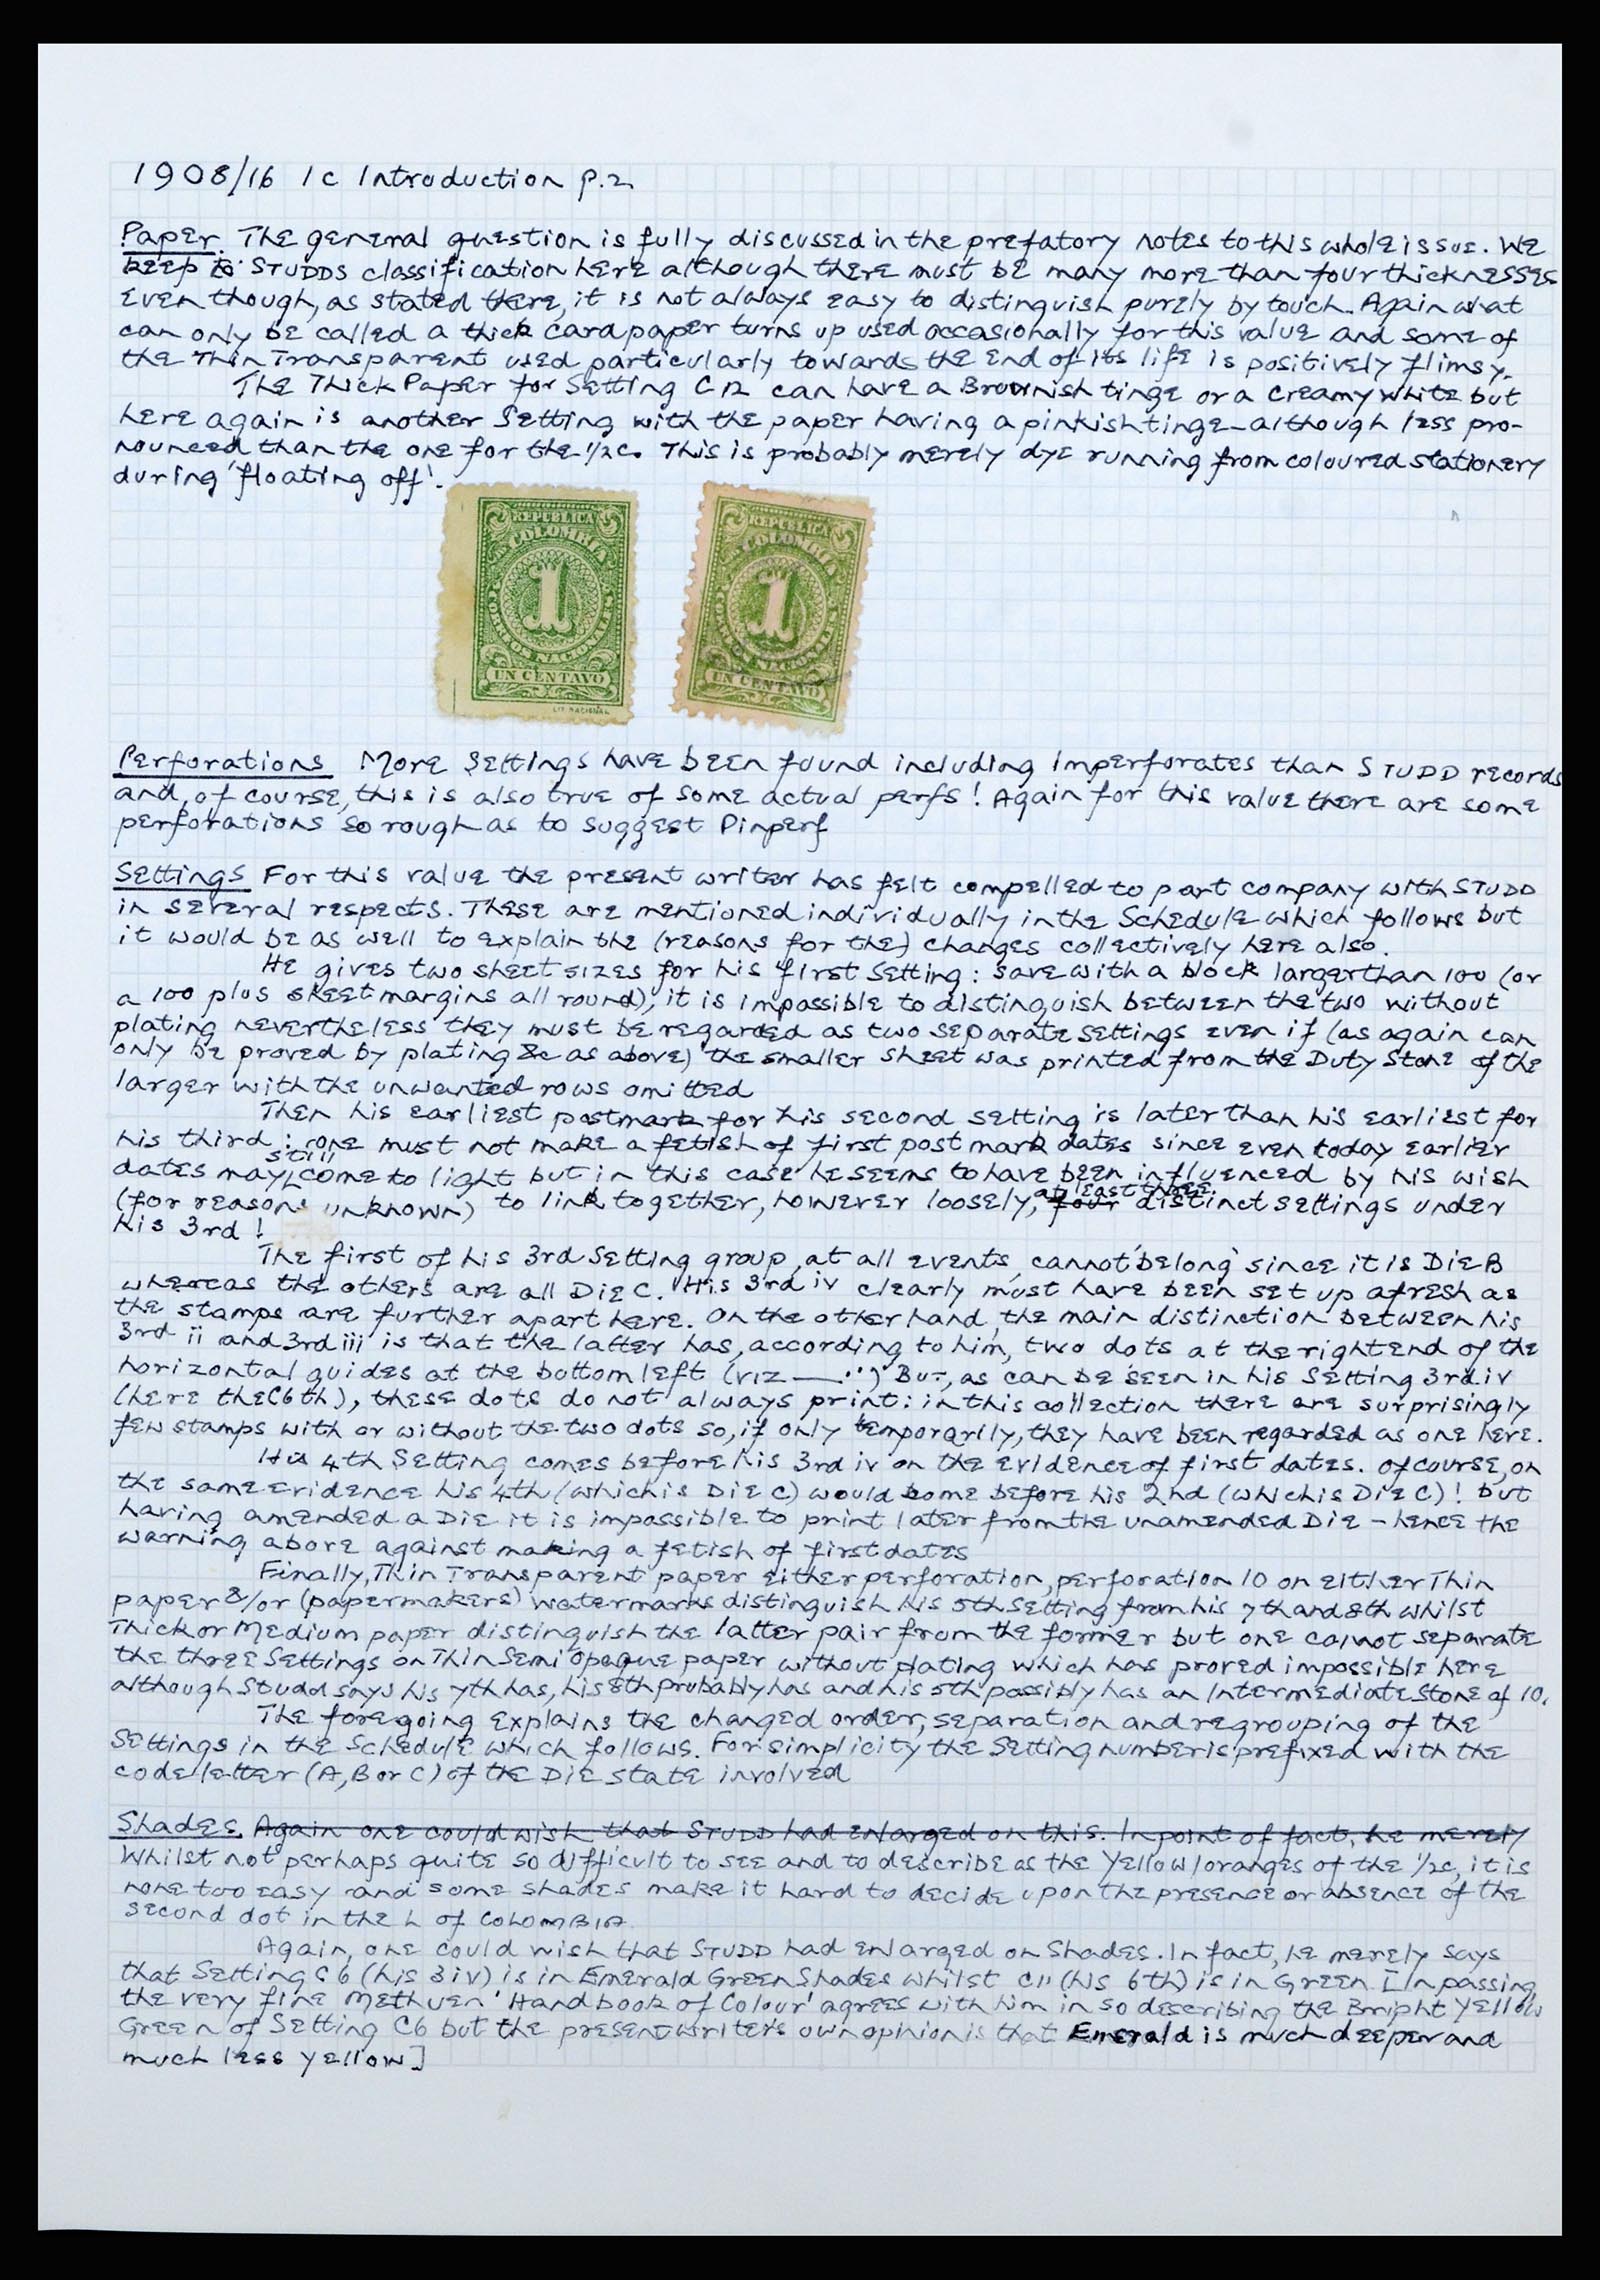 1908/16 1c Introduction p.2
Paper. The general question is fully discussed in the prefatory notes to this whole issue. We
keep to STUDDS classification here although there must be many more than four thicknesses
even though, as stated there, it is not always easy to distinguish purely by touch. Again what
can only be called a thick card paper turns up used occasionally for this value and some of
the Thin Transparent used particularly towards the end of its life is positively flimsy.
The Thick Paper for Setting C12 can have a Brownish tinge or a creamy white but
here again is another Setting with the paper having a pinkish tinge - although less pro-
nounced than the one for the 1/2c. This is probably merely dye running from coloured stationery
during 'floating off'.
REPUBLICA
DE COLOMBIA
1
CORREOS NACIONALES
UN CENTAVO
LIT NACIONAL
REPUBLICA
DE COLOMBIA
1
CORREOS NACIONALES
UN CENTAVO
Perforations More Settings have been found including Imperforates than STUDD records
and, of course, this is also true of some actual perfs! Again for this value there are some
perforations so rough as to suggest Pinperf
Settings For this value the present writer has felt compelled to part company with STUDD
in several respects. These are mentioned individually in the Schedule which follows but
it would be as well to explain the (reasons for the) changes collectively here also.
He gives two sheet sizes for his first Setting: save with a block larger than 100 (or
a 100 plus sheet margins all round), it is impossible to distinguish between the two without
plating nevertheless they must be regarded as two separate settings even if (as again can
only be proved by plating &c as above) the smaller sheet was printed from the Duty Stone of the
larger with the unwanted rows omitted
Then his earliest postmark for his second setting is later than his earliest for
his third: one must not make a fetish of first postmark dates since even today earlier
dates may still come to light but in this case he seems to have been influenced by his wish
(for reasons unknown) to link together, however loosely, four at least three distinct settings under
his 3rd!
The first of his 3rd Setting group, at all events, cannot 'belong' since it is Die B
whereas the others are all Die C. His 3rd iv clearly must have been set up afresh as
the stamps are further apart here. On the other hand, the main distinction between his
3rd ii and 3rd iii is that the latter has, according to him, two dots at the right end of the
horizontal guides at the bottom left (viz —··) But, as can be seen in his Setting 3rd iv
(here the C6th), these dots do not always print: in this collection there are surprisingly
few stamps with or without the two dots so, if only temporarily, they have been regarded as one here.
His 4th Setting comes before his 3rd iv on the evidence of first dates. Of course, on
the same evidence his 4th (which is Die C) would come before his 2nd (which is Die C)! but
having amended a Die it is impossible to print later from the unamended Die - hence the
warning above against making a fetish of first dates
Finally, Thin Transparent paper either perforation, perforation 10 on either Thin
paper &/or (papermakers) watermarks distinguish his 5th Setting from his 7th and 8th whilst
Thick or Medium paper distinguish the latter pair from the former but one cannot separate
the three Settings on Thin Semi Opaque paper without plating which has proved impossible here
although Studd says his 7th has, his 8th probably has and his 5th possibly has an Intermediate Stone of 10.
The foregoing explains the changed order, separation and regrouping of the
Settings in the Schedule which follows. For simplicity the Setting number is prefixed with the
code letter (A, B or C) of the Die state involved
Shades. Again one could wish that STUDD had enlarged on this. In point of fact, he merely
Whilst not perhaps quite so difficult to see and to describe as the Yellow/oranges of the 1/2c, it is
none too easy and some shades make it hard to decide upon the presence or absence of the
second dot in the L of COLOMBIA
Again, one could wish that STUDD had enlarged on Shades. In fact, he merely says
that Setting C6 (his 3iv) is in Emerald Green Shades whilst C11 (his 6th) is in Green. [In passing,
the very fine Methuen 'Handbook of Colour' agrees with him in so describing the Bright Yellow
Green of Setting C6 but the present writer's own opinion is that Emerald is much deeper and
much less yellow]